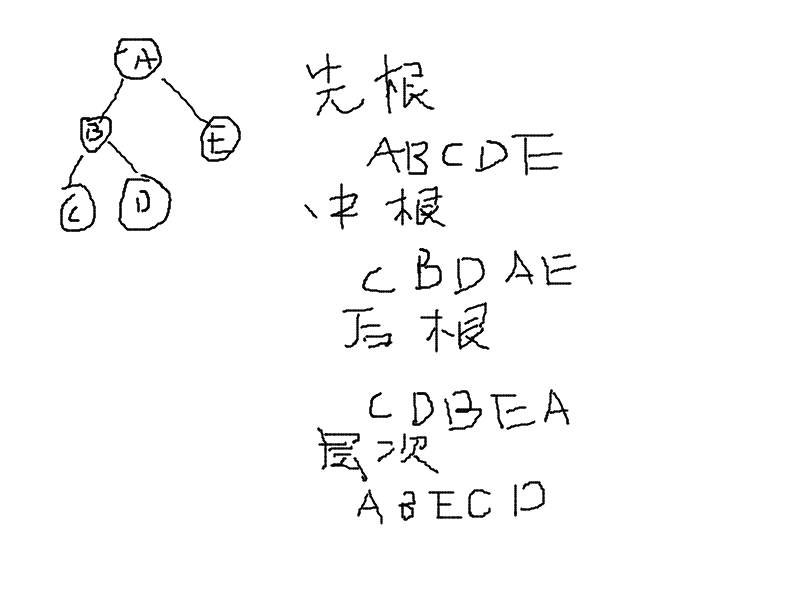 A
B
E
C
D
先根
ABCDE
中根
CBDAE
后根
CDBEA
层次
ABECD